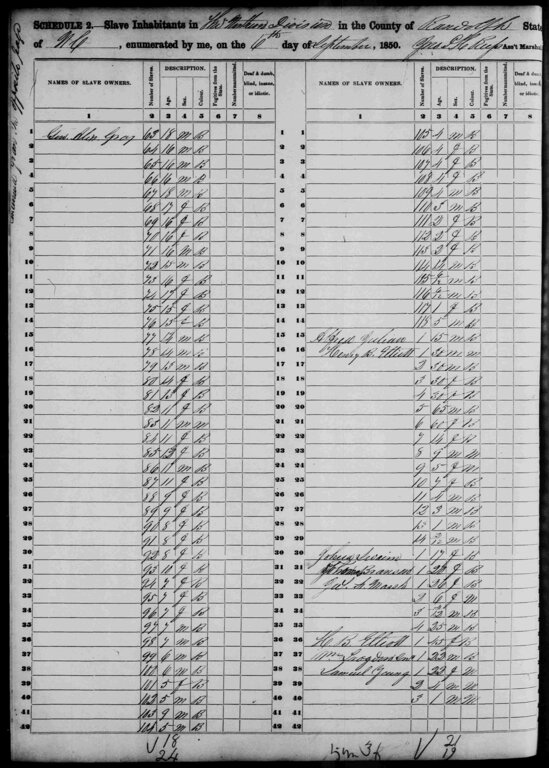 SCHEDULE 2. Slave Inhabitants in The Northern Division in the County of Randolph State
of N C, enumerated by me, on the 6th day of September, 1850. Ass't Marshal
NAMES OF SLAVE OWNERS.
Number of Slaves.
DESCRIPTION.
Age.
Sex.
Colour.
Fugitives from the State.
Number manumitted.
Deaf & dumb, blind, insane, or idiotic.
NAMES OF SLAVE OWNERS.
Number of Slaves.
DESCRIPTION.
Age.
Sex.
Colour.
Fugitives from the State.
Number manumitted.
Deaf & dumb, blind, insane, or idiotic.
1 2 3 4 5 6 7 8 1 2 3 4 5 6 7 8
1 Gen. Alex. Gray 63 18 m B 1 105 4 m B
2 64 16 m B 2 106 4 f B
3 65 16 m B 3 107 4 f B
4 66 16 m B 4 108 f B
5 67 18 m B 5 109 4 m B
6 68 17 f B 6 110 3 m B
7 69 16 f B 7 111 2 f B
8 70 16 f B 8 112 2 f B
9 71 16 m B 9 113 2 f B
10 72 m B 10 114 m B
11 73 16 f B 11 115 m B
12 74 17 f B 12 116 m B
13 75 15 f B 13 117 1 f B
14 76 13 f B 14 118 5 m B
15 77 m B 15 Julian 1 15 m B
16 78 m B 16 Henry B. Elliott 1 30 m m
17 79 m B 17 2 30 m B
18 80 f B 18 3 30 f B
19 81 13 f B 19 4 30 f B
20 82 11 f B 20 5 65 m B
21 83 11 m m 21 6 60 f B
22 84 11 f B 22 7 14 f B
23 85 12 f B 23 8 9 m m
24 86 11 m B 24 9 5 f m
25 87 11 f B 25 10 7 f B
26 88 9 f B 26 11 4 m B
27 89 9 f B 27 12 3 m B
28 90 8 f B 28 1 m B
29 91 8 f B 29 m B
30 92 8 f B 30 Joshua Swaim 1 17 f B
31 93 10 f B 31 1 f B
32 94 7 f B 32 A. Marsh 1 26 f B
33 95 7 f B 33 2 6 f m
34 96 7 f B 34 3 m B
35 97 7 m B 35 4 25 m B
36 98 7 m B 36 H. B. Elliott 1 45 f B
37 99 6 m B 37 Wm 1 22 m B
38 100 6 m B 38 Samuel Young 1 22 f m
39 101 5 f B 39 2 4 m m
40 102 5 m B 40 3 1 m m
41 103 9 m B 41
42 104 5 m B 42
18
24
21
19